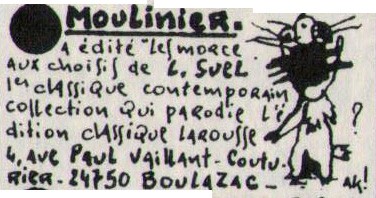 MOULINIER.
A édité "les morce
aux choisis de L. SUEL
1er classique contemporain
collection qui parodie l'é
dition classique LAROUSSE
4, ave Paul Vaillant-Coutu.
RIER-24750 BOULAZAC_
?
AH!